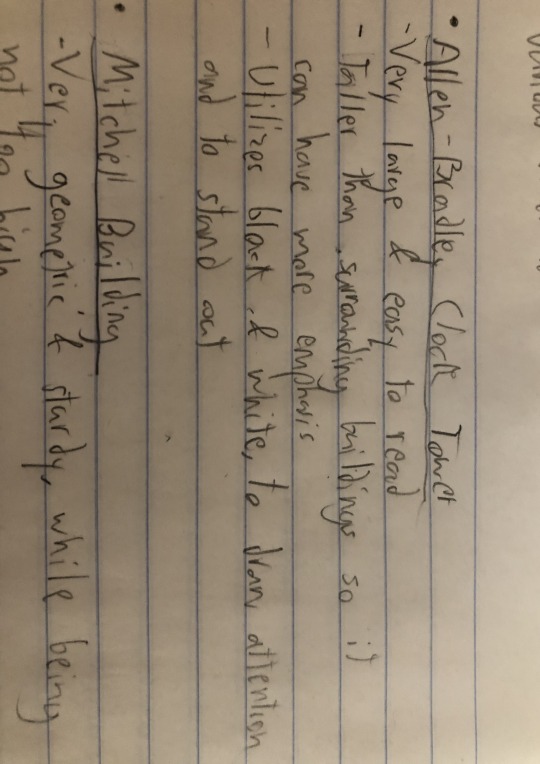 • Allen-Bradley Clock Tower
-Very large & easy to read
- Taller than surrounding buildings so it
can have more emphasis
- Utilizes black & white, to draw attention
and to stand out
• Mitchell Building
-Very geometric & sturdy, while being
high